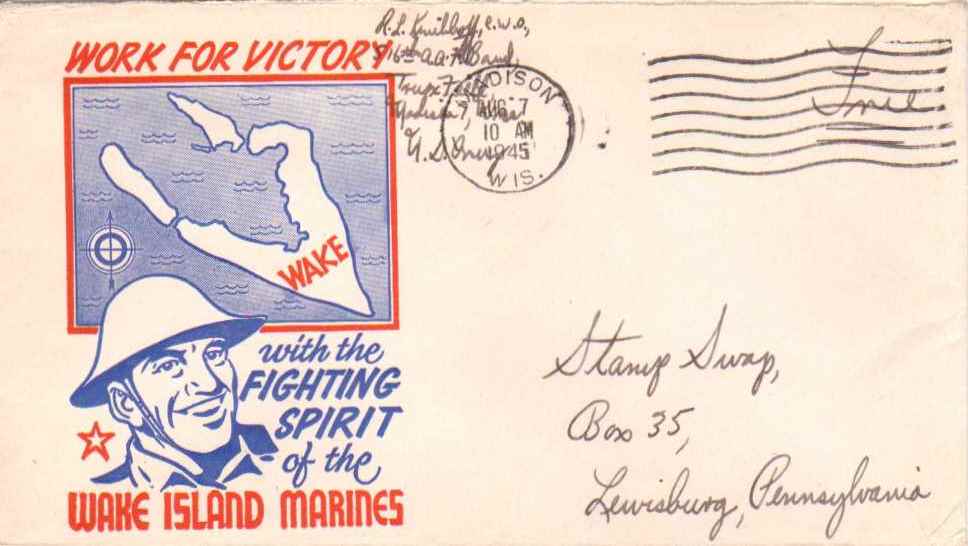 WORK FOR VICTORY
WAKE
with the
FIGHTING
SPIRIT
of the
WAKE ISLAND MARINES
R.L. C.W.O.,
A.A.F. Band,
Truax Field
Madison 7,
U.S. Army
MADISON
AUG 7
10 AM
1945
WIS.
Free
Stamp Swap,
Box 35,
Lewisburg, Pennsylvania